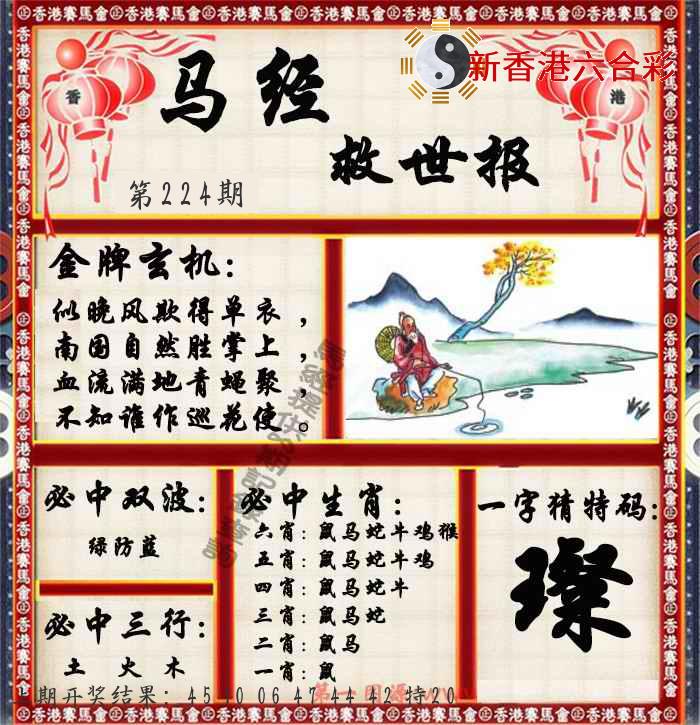 新香港六合彩
香
港
马经
救世报
第224期
金牌玄机：
似晚风欺得单衣，
南国自然胜掌上，
血流满地青蝇聚，
不知谁作巡花使。
必中双波：
绿防蓝
必中三行：
土 火 木
必中生肖：
六肖：鼠马蛇牛鸡猴
五肖：鼠马蛇牛鸡
四肖：鼠马蛇牛
三肖：鼠马蛇
二肖：鼠马
一肖：鼠
一字猜特码：
璨
期开奖结果：45 40 06 47 44 42 特20
香港赛馬會